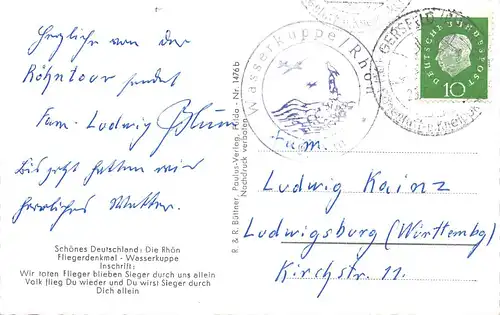 Herzliche von der
Rhöntour sendet
Fam. Ludwig Blum
Bis jetzt hatten wir
herrliches Wetter.
Schönes Deutschland: Die Rhön
Fliegerdenkmal - Wasserkuppe
Inschrift:
Wir toten Flieger blieben Sieger durch uns allein
Volk flieg Du wieder und Du wirst Sieger durch
Dich allein
R. & R. Büttner, Paulus-Verlag, Fulda - Nr. 1476 b
Nachdruck verboten
Wasserkuppe/Rhön
GERSFELD
DEUTSCHE BUNDESPOST
10
Fam.
Ludwig Kainz
Ludwigsburg (Württembg)
Kirchstr. 11.